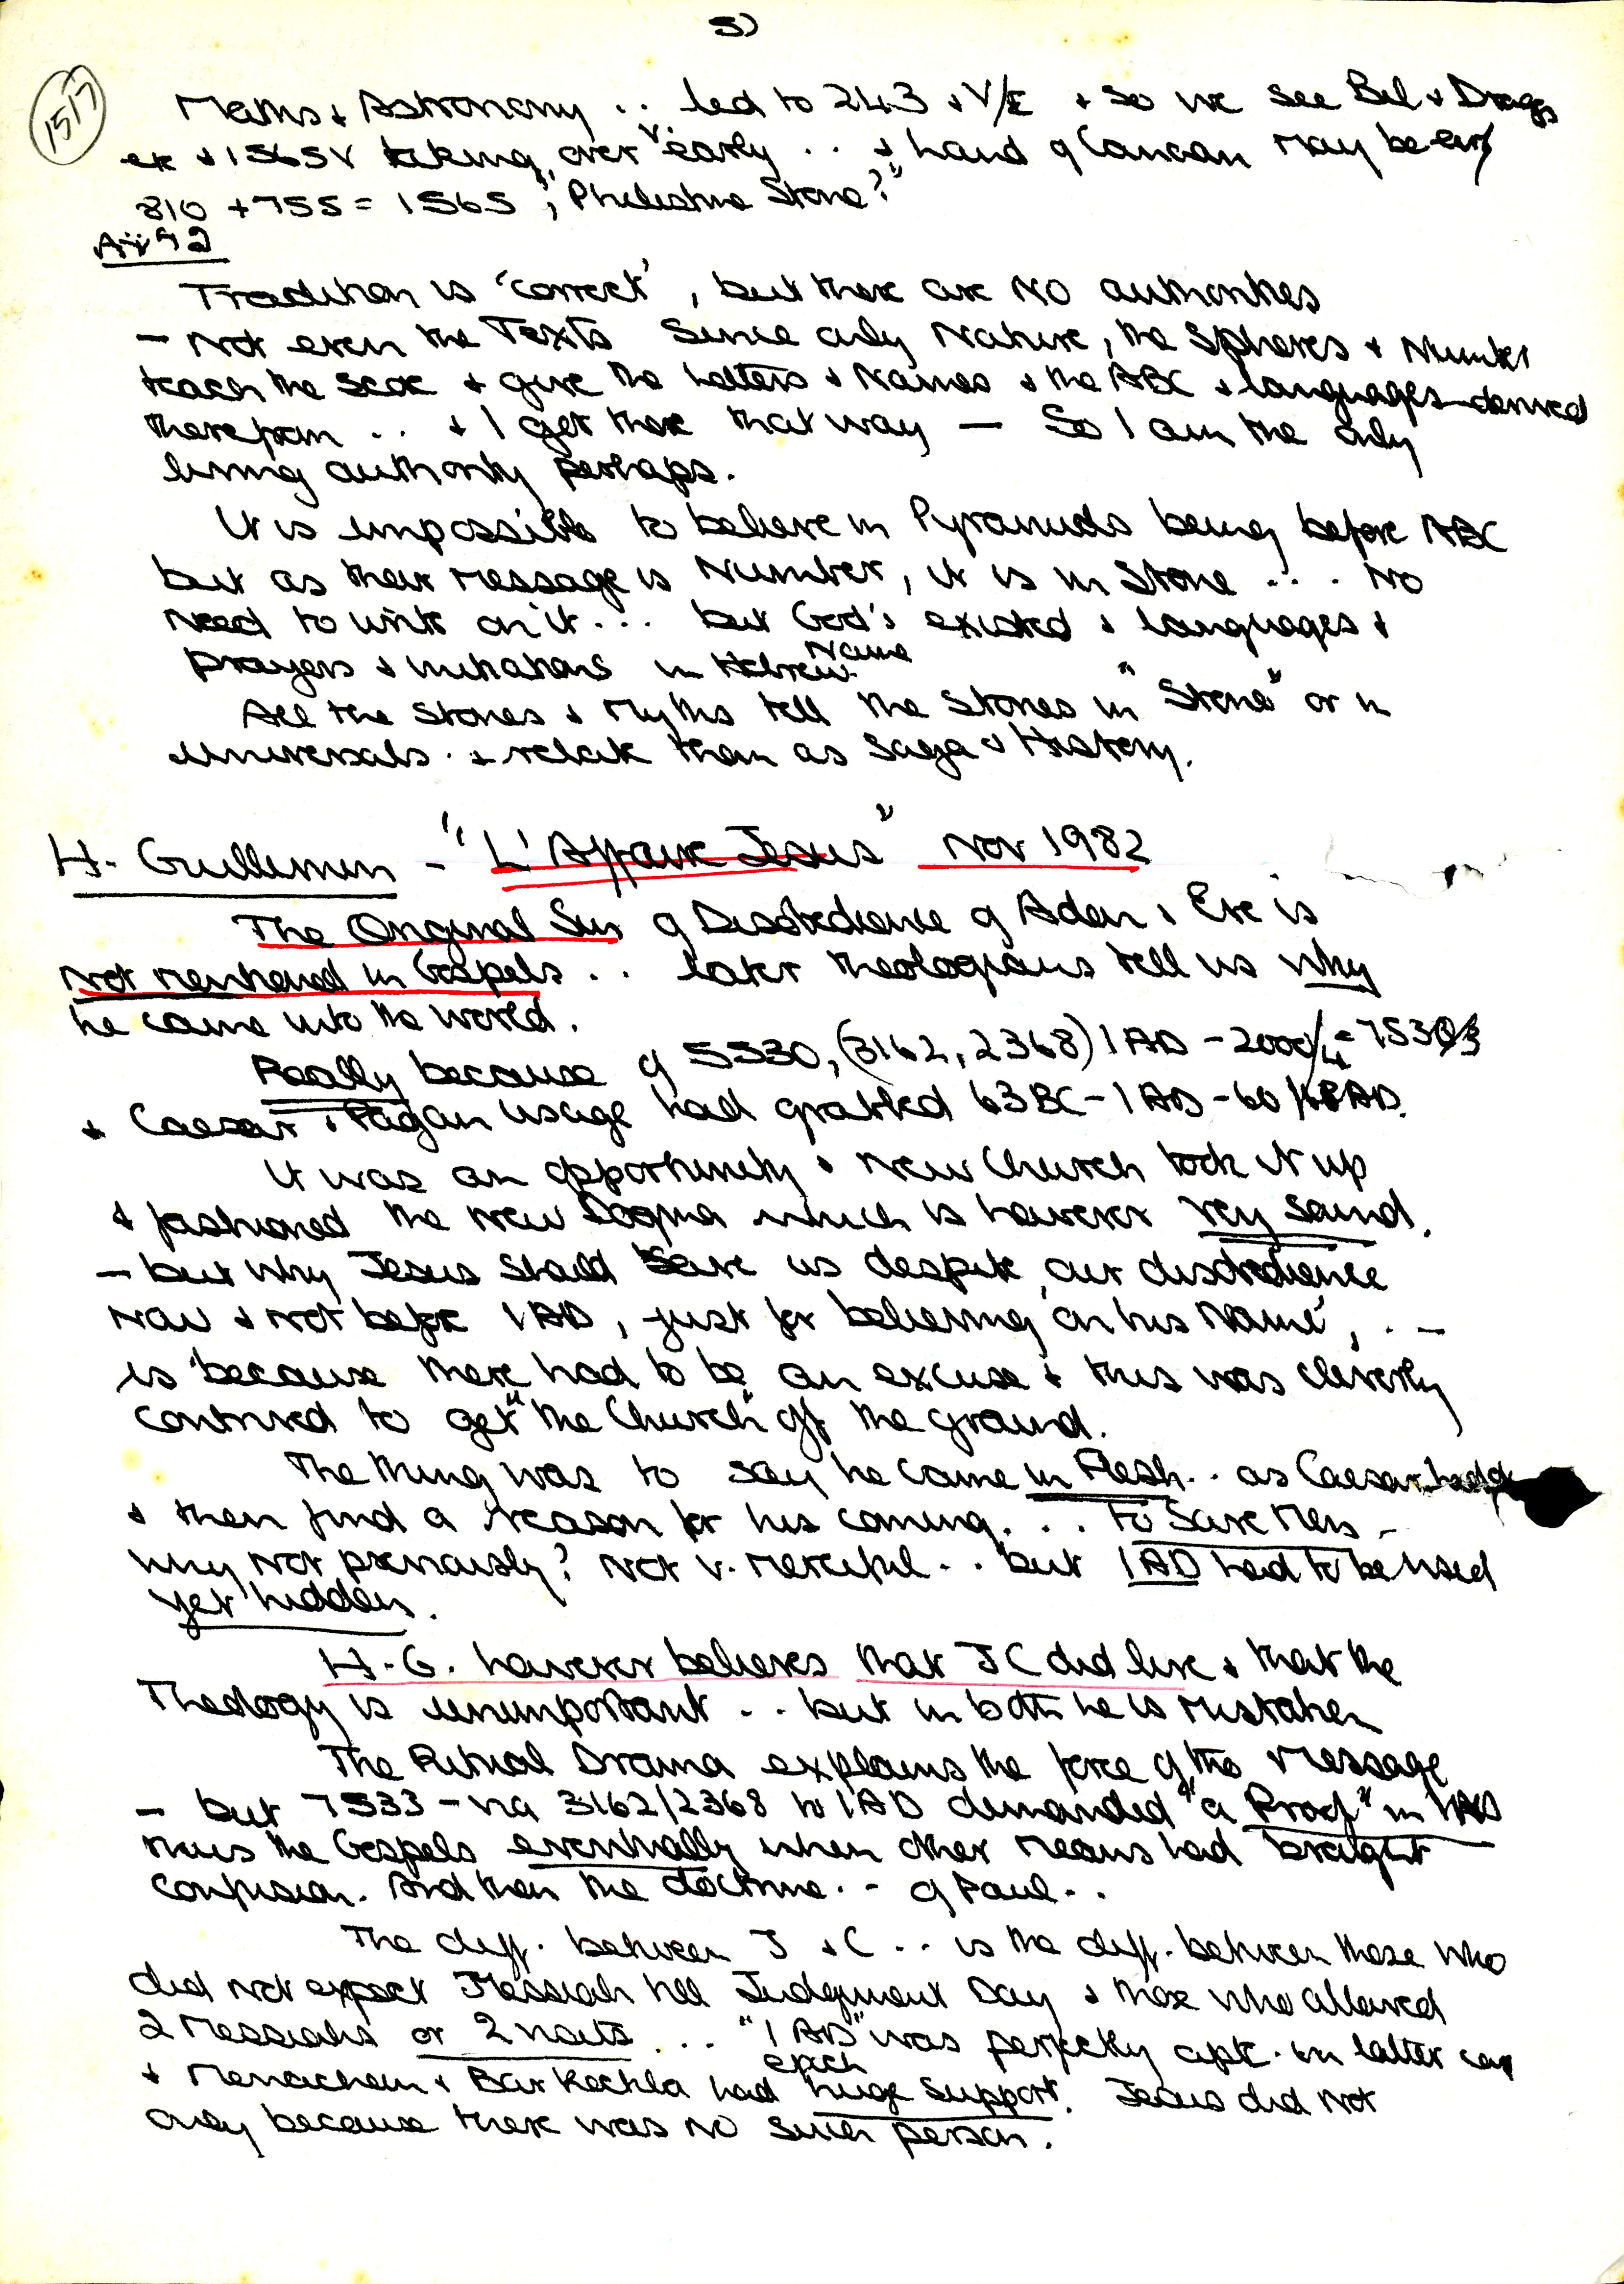 5)
1517
Maths & Astronomy .. led to 243 & V/E & so we see Bel & Drag
& 1565Y taking over v. early .. & land of Canaan may be
810 + 755 = 1565, "Philistine Stone?"
Tradition is 'correct', but there are no authorities
- not even the Texts since only Nature, the Spheres & Number
teach the & give the Letters & Names & the ABC & languages derived
therefrom .. & I get there that way — So I am the only
living authority perhaps.
It is impossible to believe in Pyramids being before ABC
but as their message is Number, it is in Stone ... No
need to write on it ... but God's Name existed & languages &
prayers & invitations in Hebrew.
All the Stories & Myths tell the Stories in "Stone" or in
Universals & relate them as Saga & History.
H. Guillemin - "L'Affaire Jesus" Nov 1982
The Original Sin of Disobedience of Adam & Eve is
not mentioned in Gospels .. later theologians tell us why
he came into the world.
Really because of 5530, (3162, 2368) 1 AD - 2000/4 =
& Caesar & Pagan usage had grabbed 63 BC - 1 AD - 60/ AD.
It was an opportunity & New Church took it up
& fashioned the new Dogma which is however very sound.
- but why Jesus should Save us despite our disobedience
now & not before 1 AD, just for believing 'on his Name', . -
is because there had to be an excuse & this was cleverly
contrived to get "the Church" off the ground.
The thing was to say he came in Flesh .. as Caesar had
& then find a reason for his coming ... to Save Men -
why not previously? Not v. merciful .. but 1 AD had to be used
yet hidden.
H.G. however believes that JC did live & that the
Theology is unimportant .. but in both he is mistaken
The Ritual Drama explains the force of the message
- but 7533 - via 3162/2368 to 1 AD demanded "a Proof" in 1 AD
thus the Gospels eventually when other means had brought
confusion. And then the doctrine .. of Paul ..
The diff. between J & C .. is the diff. between those who
did not expect Messiah till Judgement Day & those who allowed
2 Messiahs or 2 visits ... "1 AD" was perfectly apt in latter case
& Menachem & Bar Kochba had each huge support. Jesus did not
only because there was no such person.